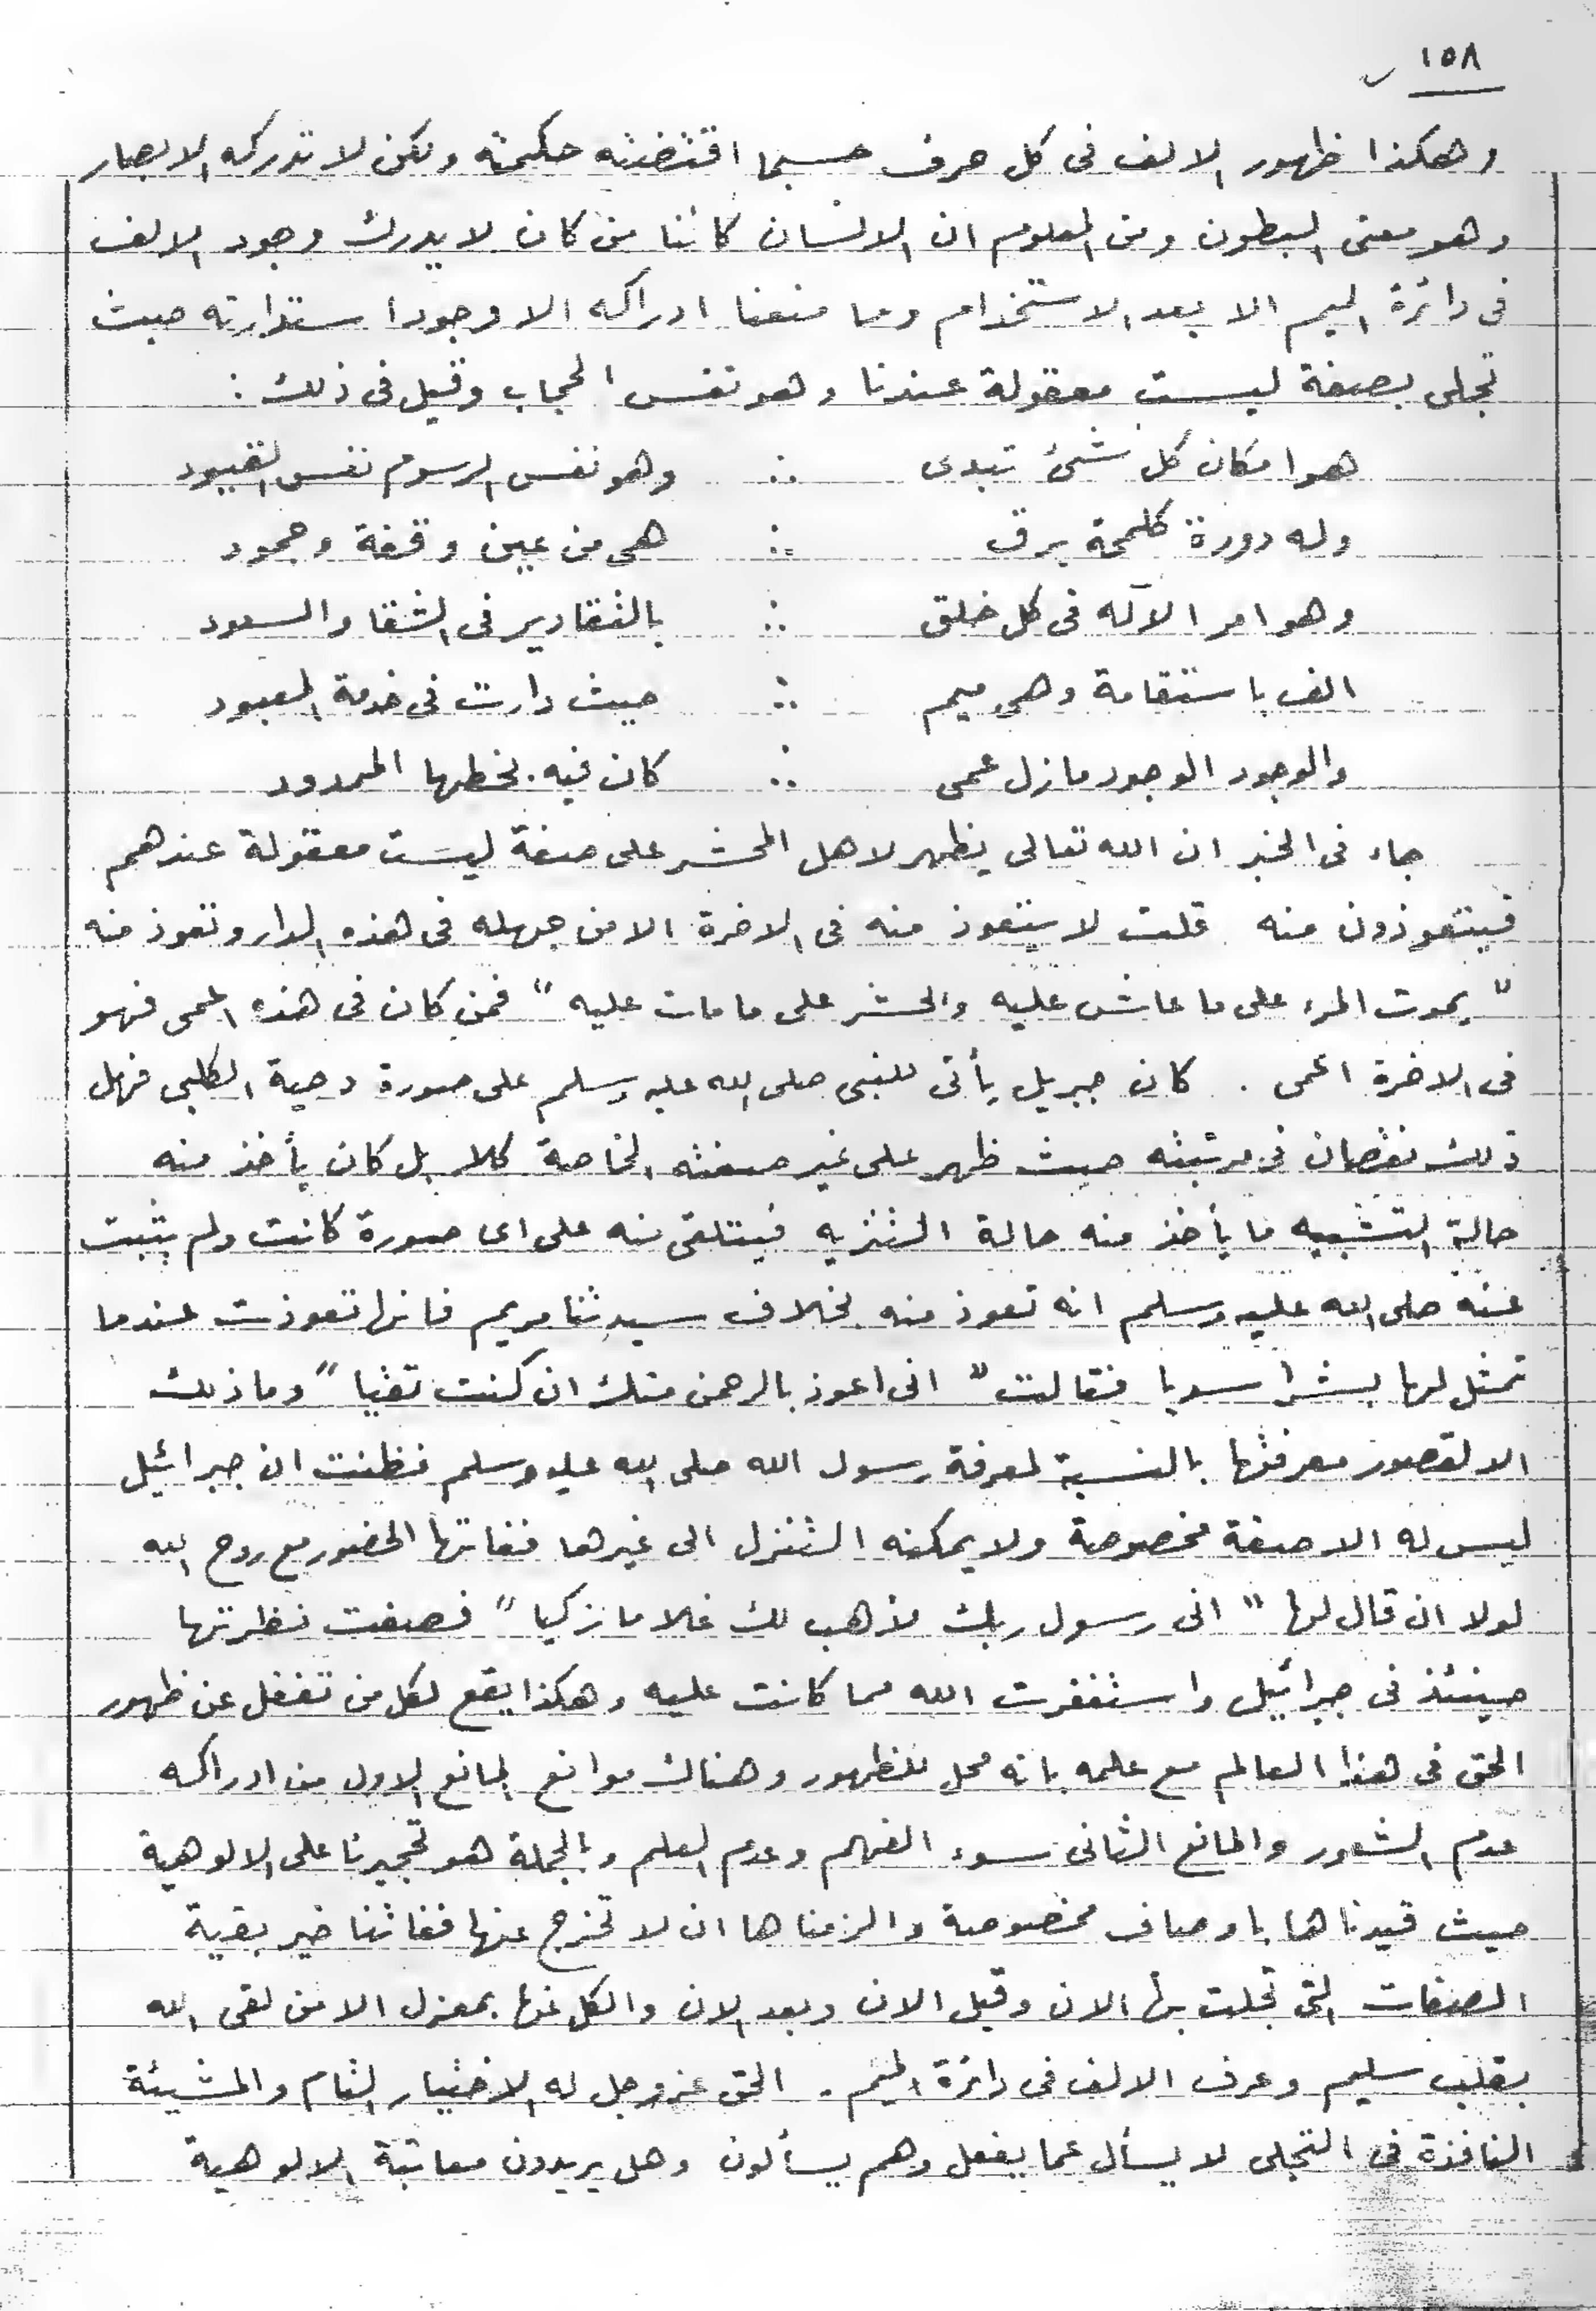 ١٥٨
وهكذا ظهور الالف فى كل حرف حسبما اقتضته حكمته ولكن لا تدركه الابصار
وهو معنى البطون ومن المعلوم ان الانسان كائنا من كان لا يدرك وجود الالف
فى دائرة الميم الا بعد الاستخدام وما منعنا ادراكه الا وجود استدارته حيث
تجلى بصفة ليست معقولة عندنا وهو نفس الحجاب وقيل فى ذلك :
هو امكان كل شئ تبدى ∴ وهو نفس الرسوم نفس القيود
وله دورة كلمحة برق ∴ هى من عين وقفة وجمود
وهو امر الآله فى كل خلق ∴ بالتقادير فى الشقا والسعود
الف باستقامة وهى ميم ∴ حيث دارت فى خدمة المعبود
والوجود الوجود مازل عمى ∴ كان فيه بخطها الممدود
جاء فى الخبر ان الله تعالى يظهر لاهل المحشر على صفة ليست معقولة عندهم
فيتعوذون منه قلت لا يتعوذ منه فى الاخرة الا من جهله فى هذه الدار وتعوذ منه
" يموت المرء على ما عاش عليه والحشر على ما مات عليه " فمن كان فى هذه اعمى فهو
فى الاخرة اعمى . كان جبريل يأتى للنبى صلى الله عليه وسلم على صورة دحية الكلبى فهل
ذلك نقصان فى مرتبته حيث ظهر على غير صفته الخاصة كلا بل كان يأخذ منه
حالة التشبيه ما يأخذ منه حالة التنزيه فيتلقى منه على اى صورة كانت ولم يثبت
عنه صلى الله عليه وسلم انه تعوذ منه بخلاف سيدتنا مريم فانها تعوذت عندما
تمثل لها بشرا سويا فقالت " انى اعوذ بالرحمن منك ان كنت تقيا " وما ذلك
الا لقصور معرفتها بالنسبة لمعرفة رسول الله صلى الله عليه وسلم فظنت ان جبرائيل
ليس له الا صفة مخصوصة ولا يمكنه التنزل الى غيرها ففاتها الحضور مع روح الله
لولا ان قال لها " انى رسول ربك لأهب لك غلاما زكيا " فصفت نظرتها
حينئذ فى جبرائيل واستغفرت الله مما كانت عليه وهكذا يقع لكل من تغفل عن ظهور
الحق فى هذا العالم مع علمه بانه محل للظهور وهناك موانع المانع الاول من ادراكه
عدم الشعور والمانع الثانى سوء الفهم وعدم العلم وبالجملة هو تحجيرنا على الالوهية
حيث قيدناها باوصاف مخصوصة والزمناها ان لا تخرج عنها ففاتنا خير بقية
الصفات التى تجلت بها الان وقبل الان وبعد الان والكل عنها بمعزل الا من لقى الله
بقلب سليم وعرف الالف فى دائرة الميم . الحق عز وجل له الاختيار التام والمشيئة
النافذة فى التجلى لا يسأل عما يفعل وهم يسألون وهل يريدون معاتبة الالوهية